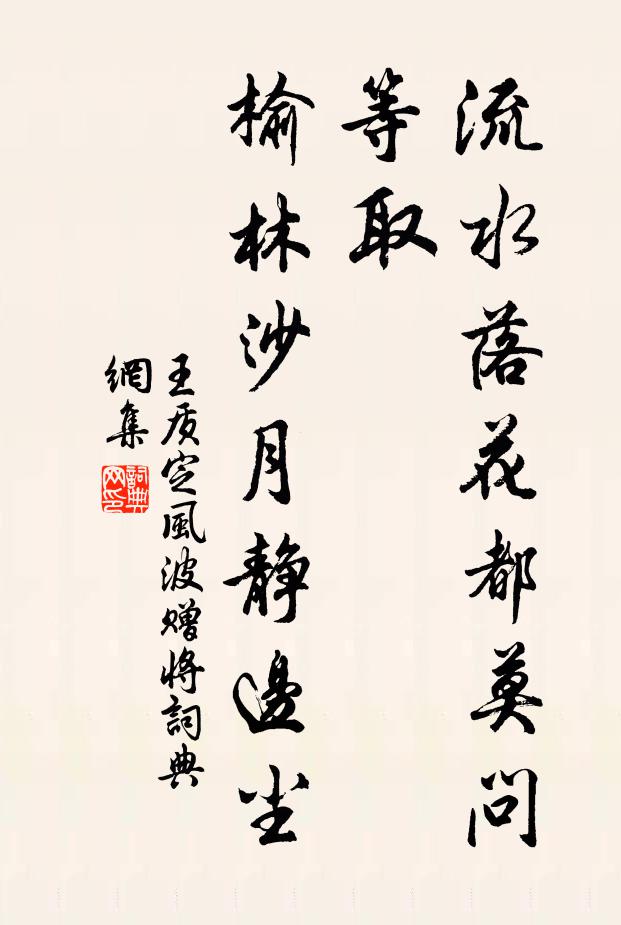 流水落花都莫問
等取
榆林沙月静邊尘
王质定風波赠将詞典
網集
詞典
网印